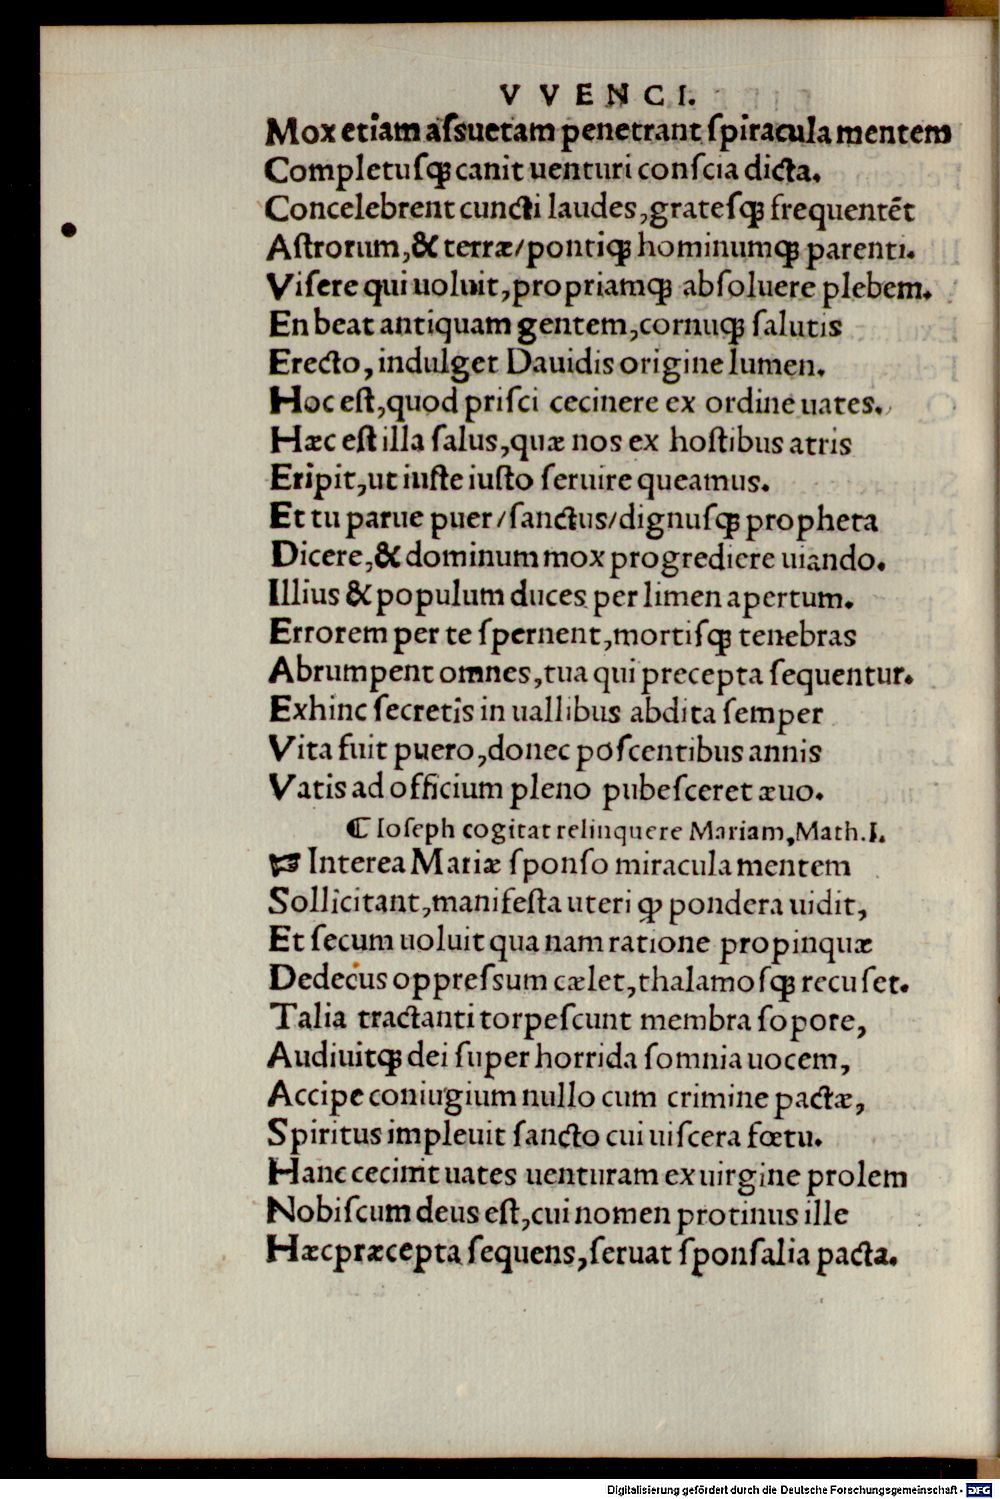 VVENCI.
Mox etiam assuetam penetrant ſpiracula mentem
Completuſqꝫ canit uenturi conſcia dicta.
Concelebrent cuncti laudes, grateſqꝫ frequentēt
Aſtrorum, & terræ/ pontiqꝫ hominumqꝫ parenti.
Viſere qui uoluit, propriamqꝫ abſoluere plebem.
En beat antiquam gentem, cornuqꝫ ſalutis
Erecto, indulget Dauidis origine lumen.
Hoc eſt, quod priſci cecinere ex ordine uates.
Hæc eſt illa ſalus, quæ nos ex hoſtibus atris
Eripit, ut iuſte iuſto ſeruire queamus.
Et tu parue puer/ ſanctus/ dignuſqꝫ propheta
Dicere, & dominum mox progrediere uiando.
Illius & populum duces per limen apertum.
Errorem per te ſpernent, mortiſqꝫ tenebras
Abrumpent omnes, tua qui precepta ſequentur.
Exhinc ſecretis in uallibus abdita ſemper
Vita fuit puero, donec poſcentibus annis
Vatis ad officium pleno pubeſceret æuo.
⸿ Ioſeph cogitat relinquere Mariam, Math. I.
☞ Interea Mariæ ſponſo miracula mentem
Sollicitant, manifeſta uteri ꝙ pondera uidit,
Et ſecum uoluit qua nam ratione propinquæ
Dedecus oppreſſum cælet, thalamoſqꝫ recuſet.
Talia tractanti torpeſcunt membra ſopore,
Audiuitqꝫ dei ſuper horrida ſomnia uocem,
Accipe coniugium nullo cum crimine pactæ,
Spiritus impleuit ſancto cui uiſcera fœtu.
Hanc cecinit uates uenturam ex uirgine prolem
Nobiſcum deus eſt, cui nomen protinus ille
Hæc præcepta ſequens, ſeruat ſponſalia pacta.
Digitalisierung gefördert durch die Deutsche Forschungsgemeinschaft - DFG